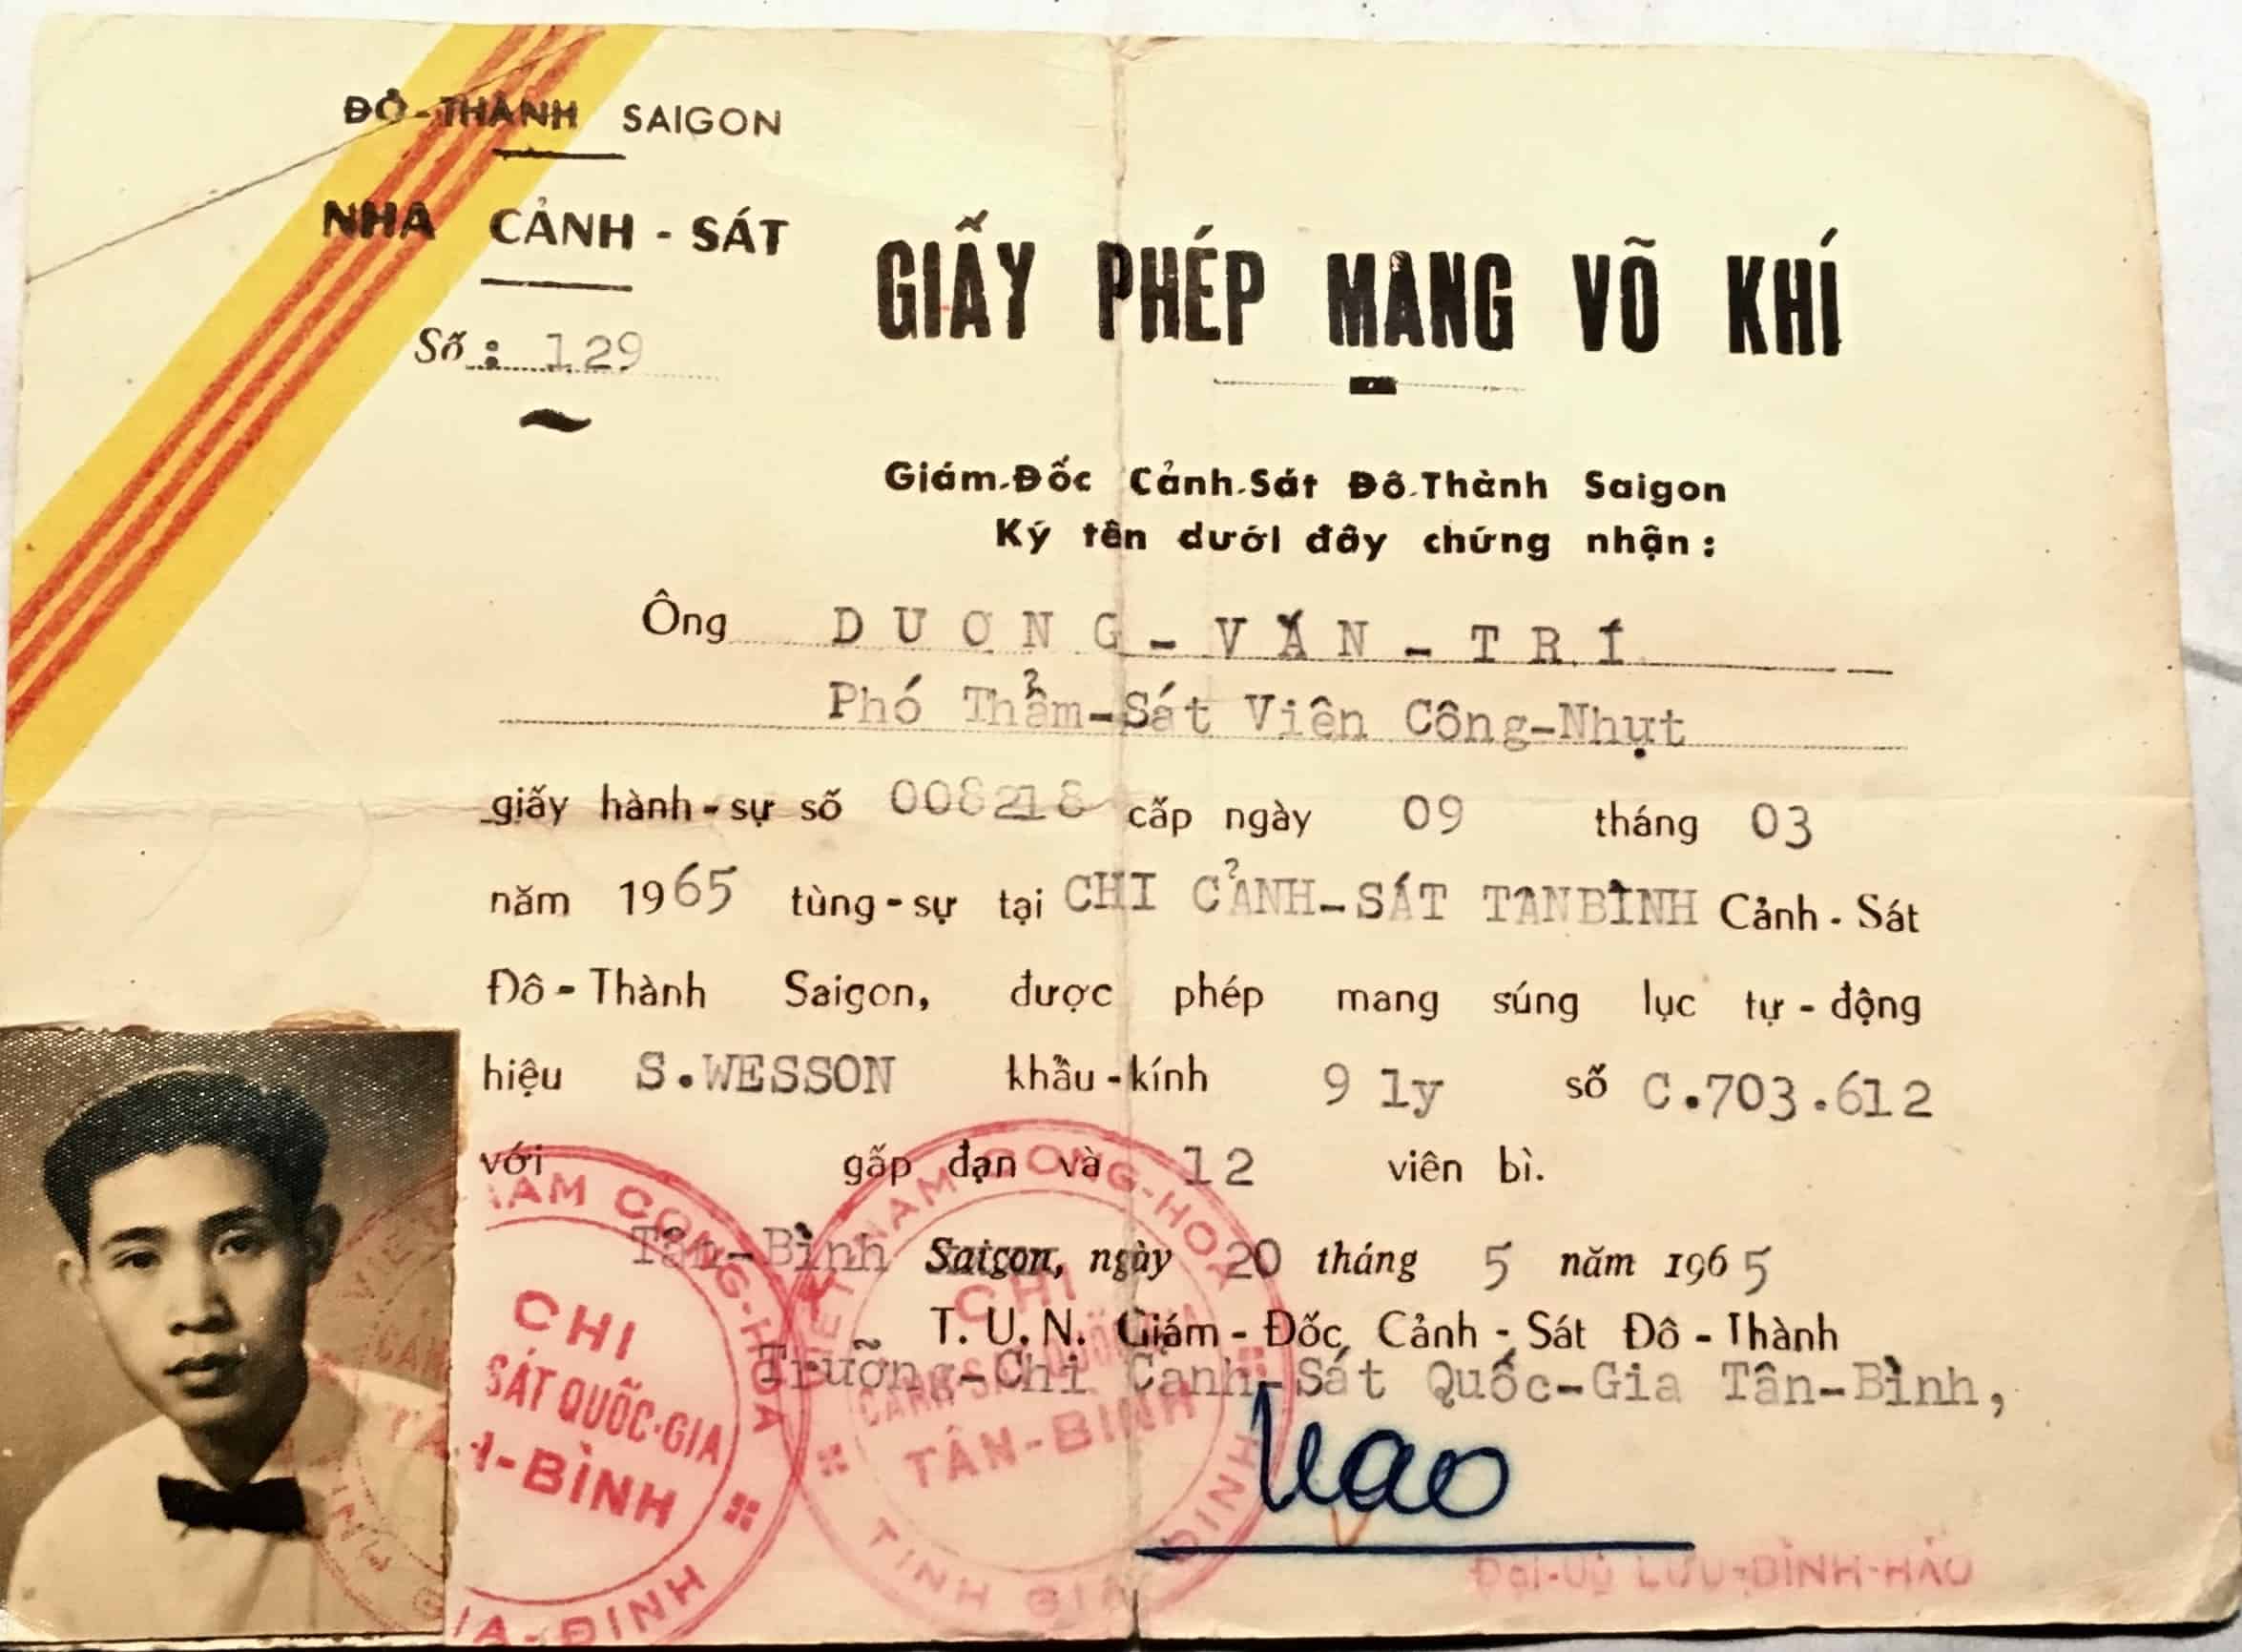 ĐÔ-THÀNH SAIGON
NHA CẢNH-SÁT
Số: 129
GIẤY PHÉP MANG VÕ KHÍ
Giám-Đốc Cảnh-Sát Đô-Thành Saigon
Ký tên dưới đây chứng nhận:
Ông DƯƠNG-VĂN-TRÍ
Phó Thẩm-Sát Viên Công-Nhựt
giấy hành-sự số 008218 cấp ngày 09 tháng 03
năm 1965 tùng-sự tại CHI CẢNH-SÁT TANBÌNH Cảnh-Sát
Đô-Thành Saigon, được phép mang súng lục tự-động
hiệu S.WESSON khẩu-kính 9 ly số C.703.612
với gắp đạn và 12 viên bì.
Tân-Bình Saigon, ngày 20 tháng 5 năm 1965
T.U.N. Giám-Đốc Cảnh-Sát Đô-Thành
Trưởng-Chi Cảnh-Sát Quốc-Gia Tân-Bình,
Đại-Uý LƯU-ĐÌNH-HẢO
VIỆTNAM CỘNG-HOÀ
CHI
CẢNH SÁT QUỐC-GIA
TÂN-BÌNH
TỈNH GIA-ĐỊNH
VIỆTNAM CỘNG-HOÀ
CHI
CẢNH-SÁT QUỐC-GIA
TÂN-BÌNH
TỈNH GIA-ĐỊNH